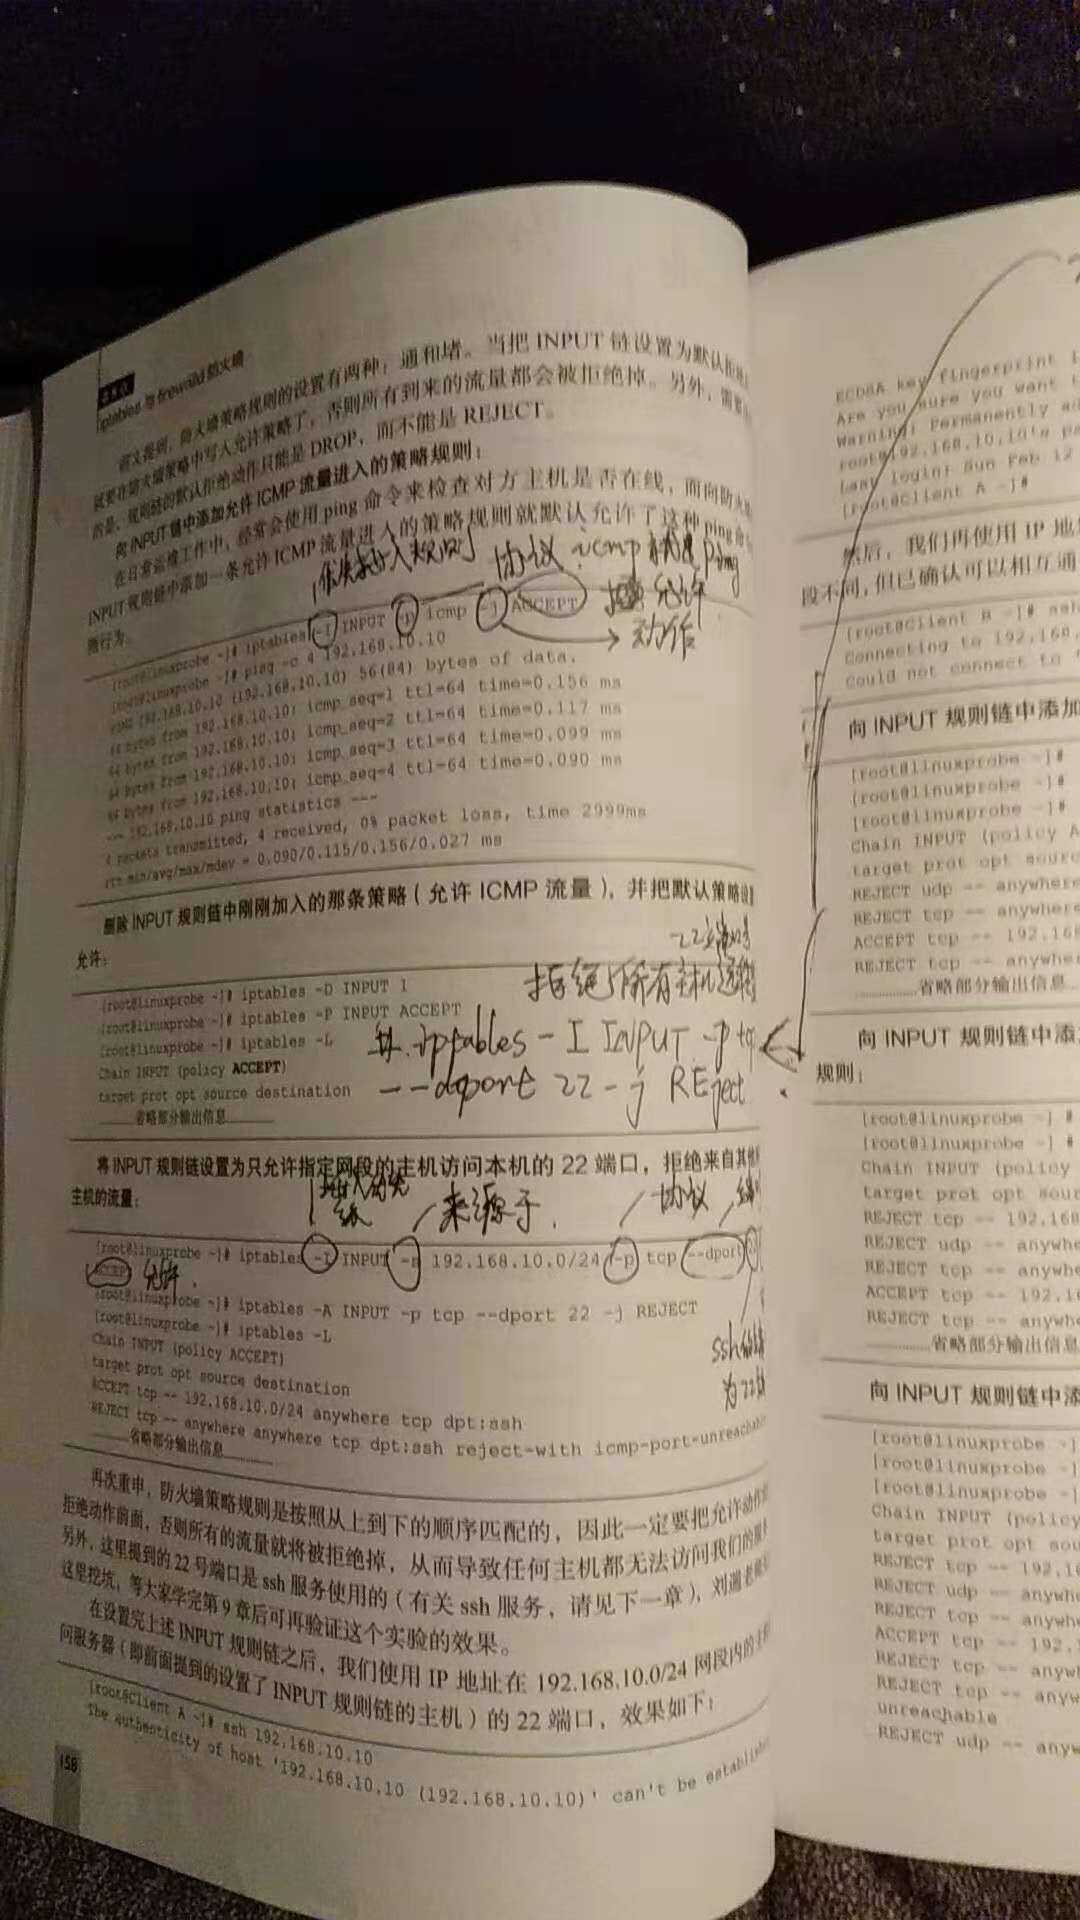 iptables 与 firewalld 防火墙
前文提到，防火墙策略规则的设置有两种：通和堵。当把 INPUT 链设置为默认拒绝
就要在防火墙策略中写入允许策略了，否则所有到来的流量都会被拒绝掉。另外，需要
的是，规则链的默认拒绝动作只能是 DROP，而不能是 REJECT。
向 INPUT 链中添加允许 ICMP 流量进入的策略规则：
在日常运维工作中，经常会使用 ping 命令来检查对方主机是否在线，而向防火
INPUT 规则链中添加一条允许 ICMP 流量进入的策略规则就默认允许了这种 ping 命令
测行为。
插入规则 协议：icmp 就是 ping
允许
动作
[root@linuxprobe ~]# iptables -I INPUT -p icmp -j ACCEPT
[root@linuxprobe ~]# ping -c 4 192.168.10.10
PING 192.168.10.10 (192.168.10.10) 56(84) bytes of data.
64 bytes from 192.168.10.10: icmp_seq=1 ttl=64 time=0.156 ms
64 bytes from 192.168.10.10: icmp_seq=2 ttl=64 time=0.117 ms
64 bytes from 192.168.10.10: icmp_seq=3 ttl=64 time=0.099 ms
64 bytes from 192.168.10.10: icmp_seq=4 ttl=64 time=0.090 ms
--- 192.168.10.10 ping statistics ---
4 packets transmitted, 4 received, 0% packet loss, time 2999ms
rtt min/avg/max/mdev = 0.090/0.115/0.156/0.027 ms
删除 INPUT 规则链中刚刚加入的那条策略（允许 ICMP 流量），并把默认策略设
允许：
22端口
拒绝所有主机远程
[root@linuxprobe ~]# iptables -D INPUT 1
[root@linuxprobe ~]# iptables -P INPUT ACCEPT
[root@linuxprobe ~]# iptables -L
Chain INPUT (policy ACCEPT)
target prot opt source destination
............省略部分输出信息............
#. ipptables - I INPUT -p tcp
--dport 22 -j REject
将 INPUT 规则链设置为只允许指定网段的主机访问本机的 22 端口，拒绝来自其他
主机的流量：
来源于 协议
[root@linuxprobe ~]# iptables -I INPUT -s 192.168.10.0/24 -p tcp --dport 22
ACCEPT 允许
[root@linuxprobe ~]# iptables -A INPUT -p tcp --dport 22 -j REJECT
[root@linuxprobe ~]# iptables -L
Chain INPUT (policy ACCEPT)
target prot opt source destination
ACCEPT tcp -- 192.168.10.0/24 anywhere tcp dpt:ssh
REJECT tcp -- anywhere anywhere tcp dpt:ssh reject-with icmp-port-unreachable
............省略部分输出信息............
ssh
为22
再次重申，防火墙策略规则是按照从上到下的顺序匹配的，因此一定要把允许动作
拒绝动作前面，否则所有的流量就将被拒绝掉，从而导致任何主机都无法访问我们的服务
另外，这里提到的 22 号端口是 ssh 服务使用的（有关 ssh 服务，请见下一章），刘遄老师
这里挖坑，等大家学完第 9 章后可再验证这个实验的效果。
在设置完上述 INPUT 规则链之后，我们使用 IP 地址在 192.168.10.0/24 网段内的主机
问服务器（即前面提到的设置了 INPUT 规则链的主机）的 22 端口，效果如下：
[root@Client A ~]# ssh 192.168.10.10
The authenticity of host '192.168.10.10 (192.168.10.10)' can't be established
158
ECDSA key fingerprint i
Are you sure you want t
Warning: Permanently ad
root@192.168.10.10's pa
Last login: Sun Feb 12
[root@Client A ~]#
然后，我们再使用 IP 地
段不同，但已确认可以相互通
[root@Client B ~]# ssh
Connecting to 192.168.
Could not connect to
向 INPUT 规则链中添加
[root@linuxprobe ~]#
[root@linuxprobe ~]#
[root@linuxprobe ~]#
Chain INPUT (policy A
target prot opt sourc
REJECT udp -- anywhere
REJECT tcp -- anywhere
ACCEPT tcp -- 192.168
REJECT tcp -- anywhe
............省略部分输出信息
向 INPUT 规则链中添
规则：
[root@linuxprobe ~] #
[root@linuxprobe ~] #
Chain INPUT (policy
target prot opt sour
REJECT tcp -- 192.168
REJECT udp -- anywhe
REJECT tcp -- anywhe
ACCEPT tcp -- 192.16
REJECT tcp -- anywhe
............省略部分输出信息
向 INPUT 规则链中添
[root@linuxprobe ~]
[root@linuxprobe ~]
[root@linuxprobe ~]
Chain INPUT (policy
target prot opt sou
REJECT tcp -- 192.16
REJECT udp -- anywh
REJECT tcp -- anywh
ACCEPT tcp -- 192.
REJECT tcp -- anyw
REJECT tcp -- anyw
unreachable
REJECT udp -- anyw